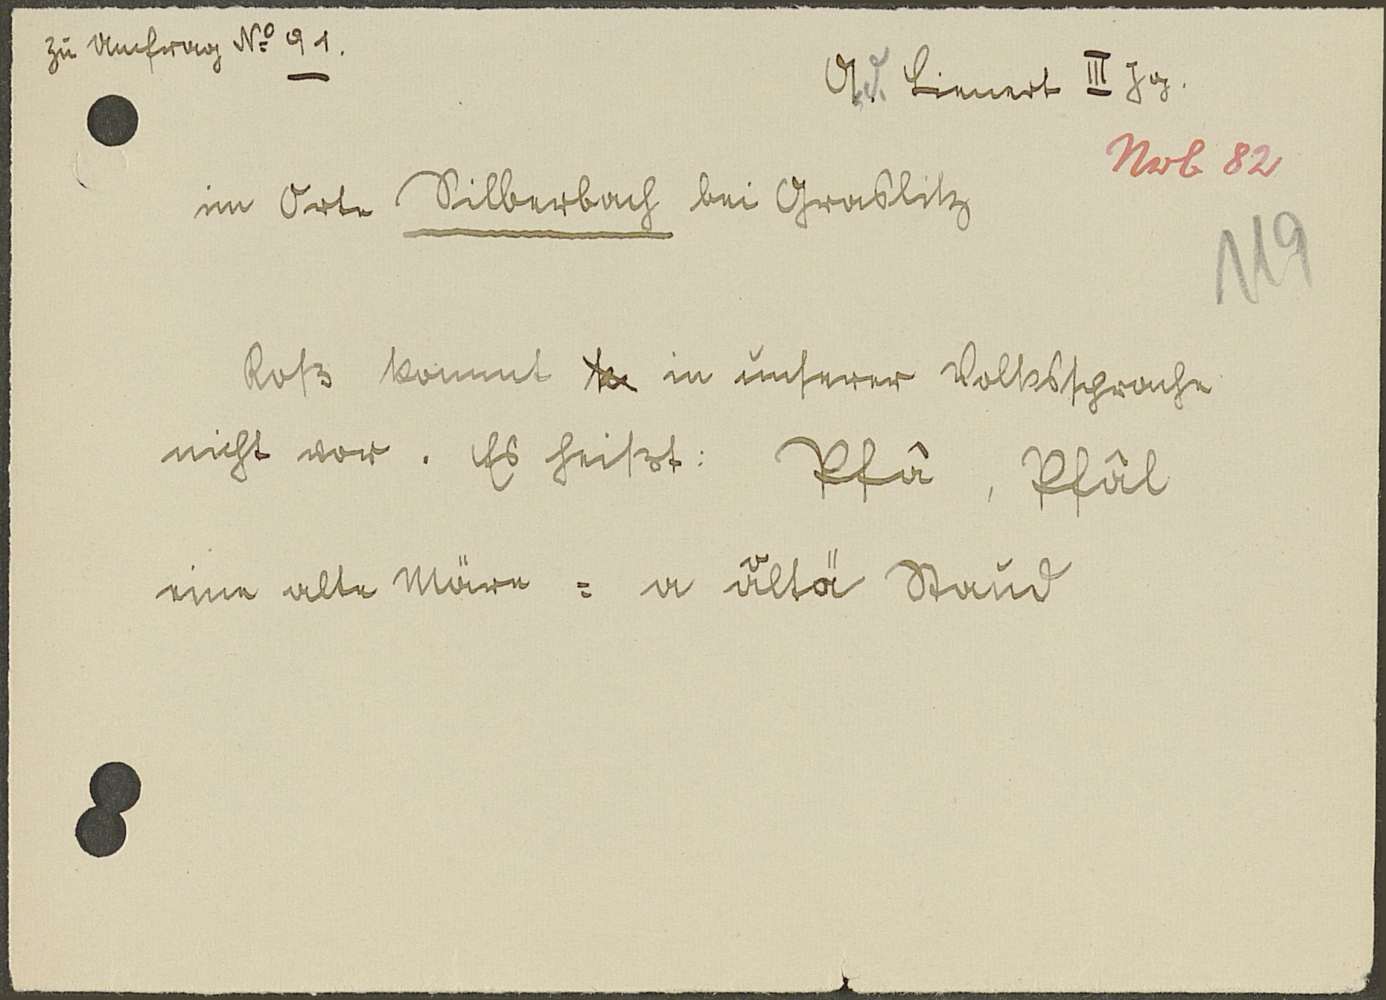 zu Umfrag No 91.
Ad. Lienert III Jg.
Nwb 82
im Orte Silberbach bei Graslitz
119
Roß kommt in unserer Volkssprache
nicht vor. Es heißt: Pfâ, Pfâl
eine alte Märe = a åltä Staud